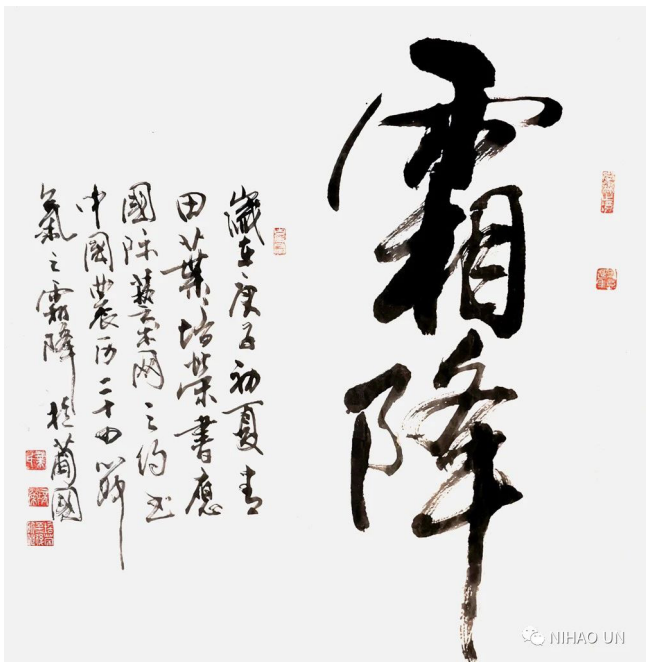 霜降
歲在庚子初夏青
田葉培榮書應
國际藝术网之约书
中國農历二十四節
氣之霜降於
NIHAO UN